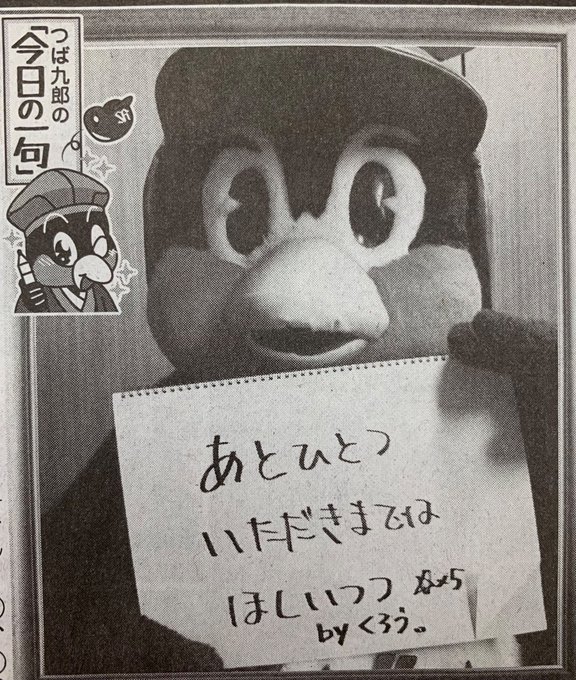 つば九郎の
「今日の一句」
あとひとつ
いただきまでは
ほしいつつ ☆×5
by くろう。